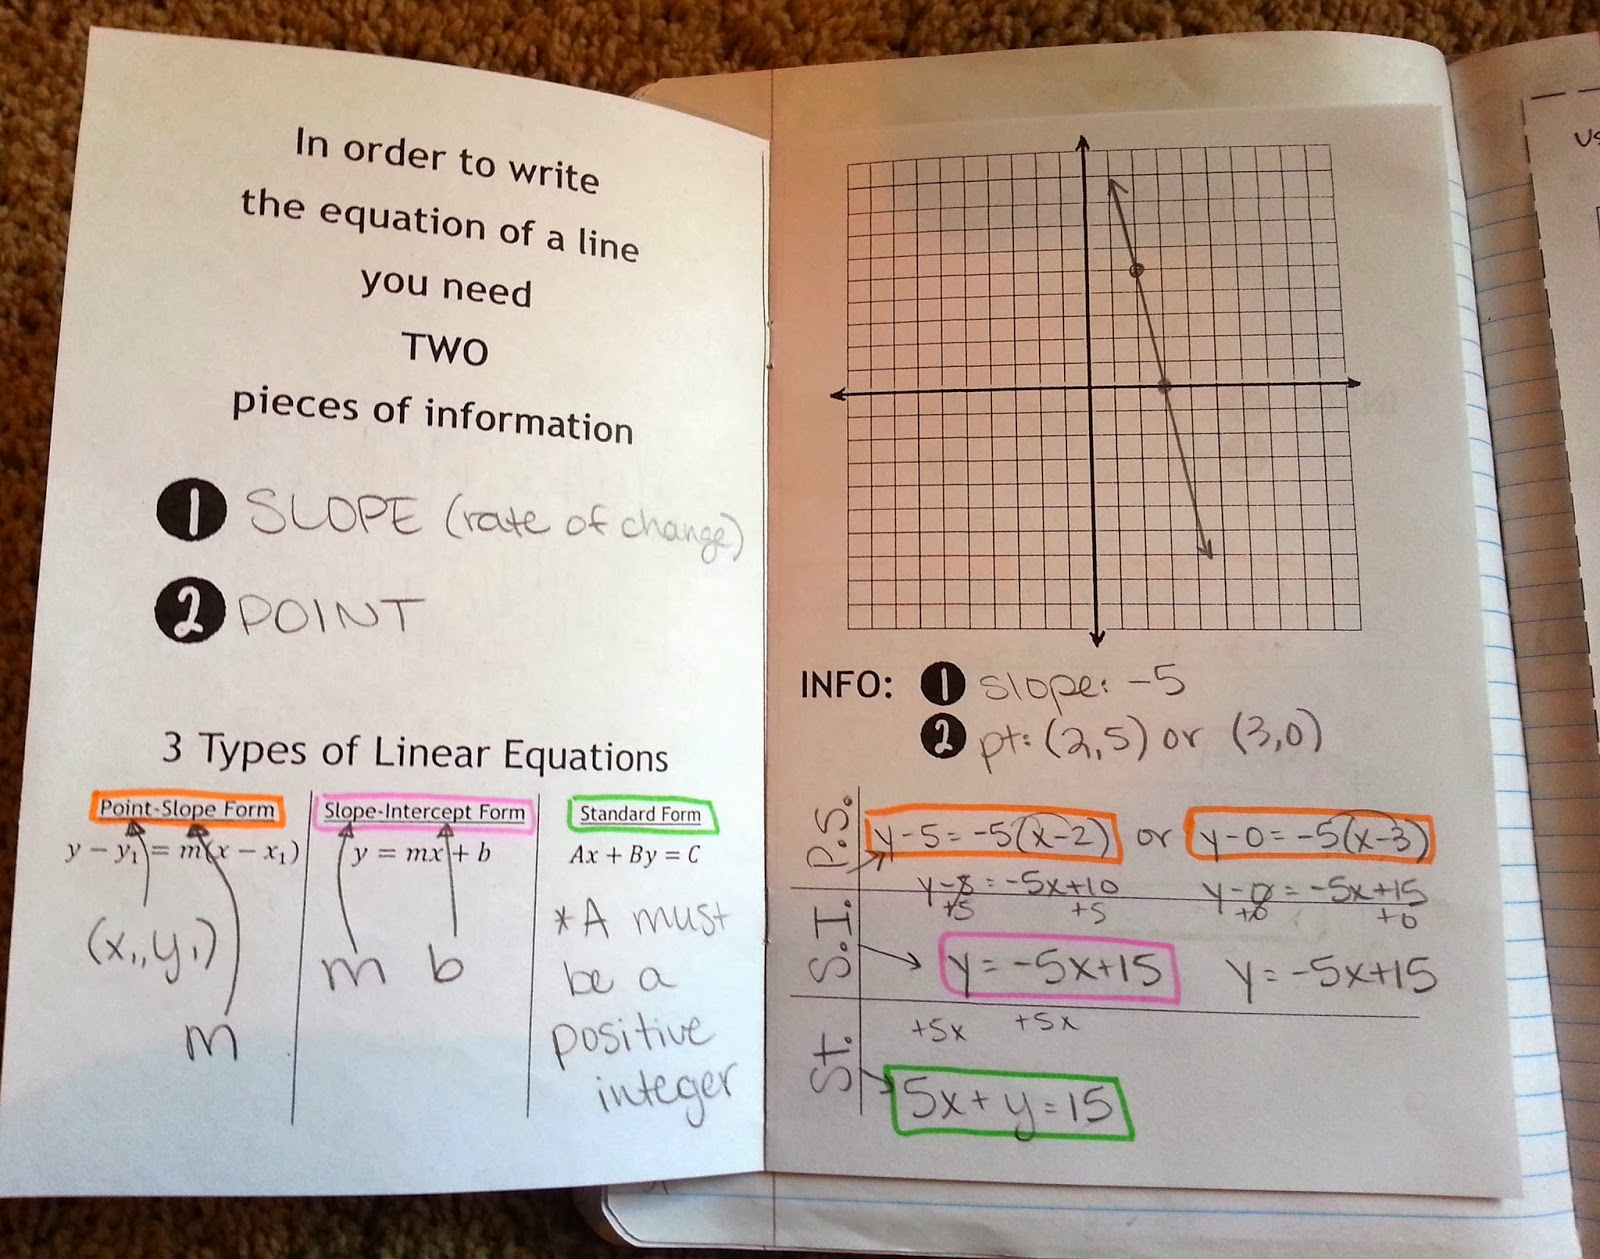 In order to write
the equation of a line
you need
TWO
pieces of information
1 SLOPE (rate of change)
2 POINT
3 Types of Linear Equations
Point-Slope Form
y − y₁ = m(x − x₁)
(x₁, y₁)
m
Slope-Intercept Form
y = mx + b
m b
Standard Form
Ax + By = C
*A must
be a
positive
integer
INFO: 1 slope: -5
2 pt: (2,5) or (3,0)
P.S. y-5=-5(x-2) or y-0=-5(x-3)
y-5=-5x+10 y-0=-5x+15
+5 +5 +0 +0
S.I. y=-5x+15 y=-5x+15
+5x +5x
St. 5x+y=15